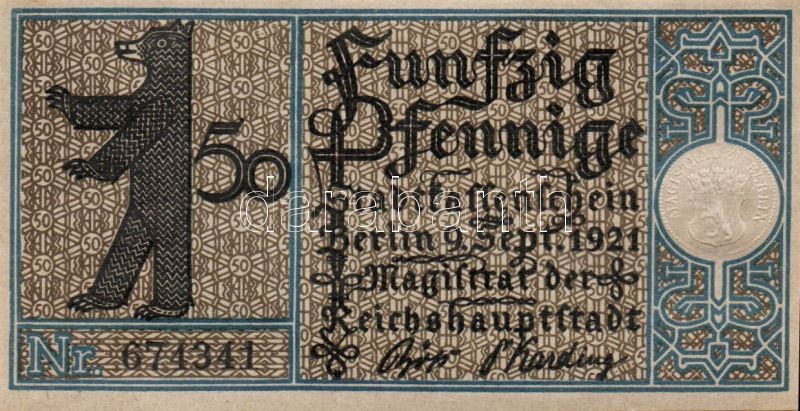 50
Fünfzig
Pfennige
Stadtkassenschein
Berlin 9. Sept. 1921
Magistrat der
Reichshauptstadt
Nr. 674341
Böß
Karding
MAGISTRAT ZU BERLIN
darabanth